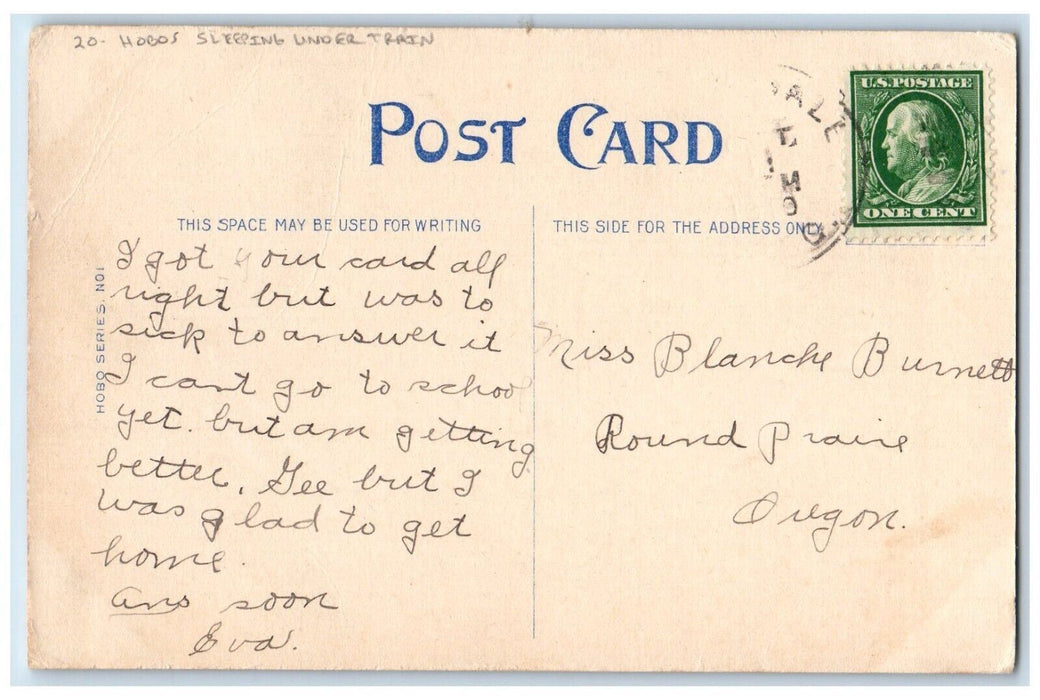 20- HOBOS SLEEPING UNDER TRAIN
POST CARD
U.S. POSTAGE
ONE CENT
THIS SPACE MAY BE USED FOR WRITING
THIS SIDE FOR THE ADDRESS ONLY
HOBO SERIES, NO1
I got your card all
right but was to
sick to answer it
I cant go to school
yet. but am getting
better. Gee but I
was glad to get
home.
Ans soon
Eva.
Miss Blanche Burnett
Round Praire
Oregon.